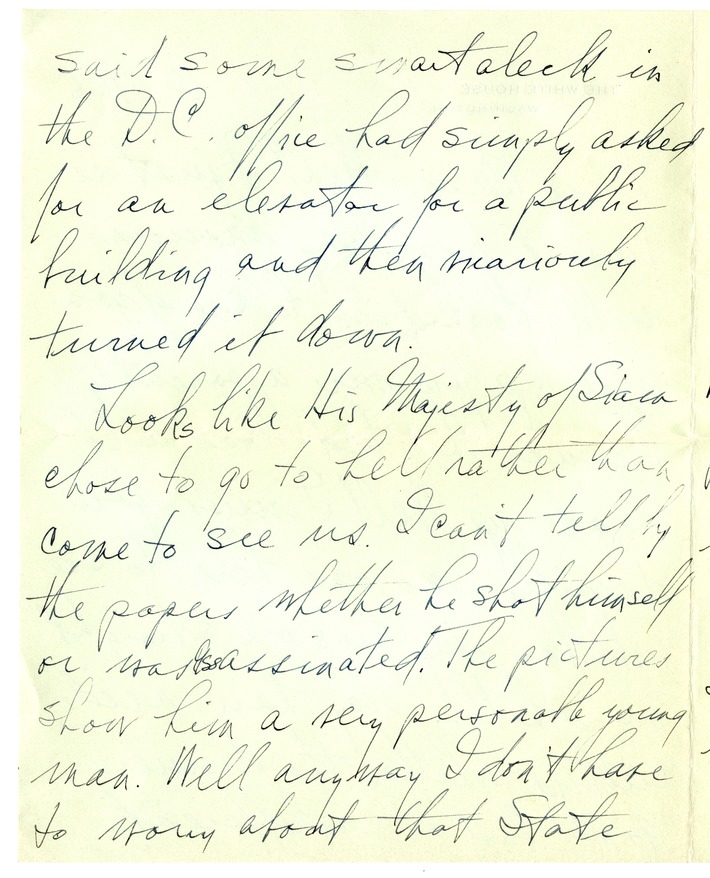 said some smart aleck in
the D.C. office had simply asked
for an elevator for a public
building and then
turned it down.
Looks like His Majesty of Siam
chose to go to hell rather than
come to see us. I can't tell by
the papers whether he shot himself
or was assassinated. The pictures
show him a very personable young
man. Well anyway I don't have
to worry about that State